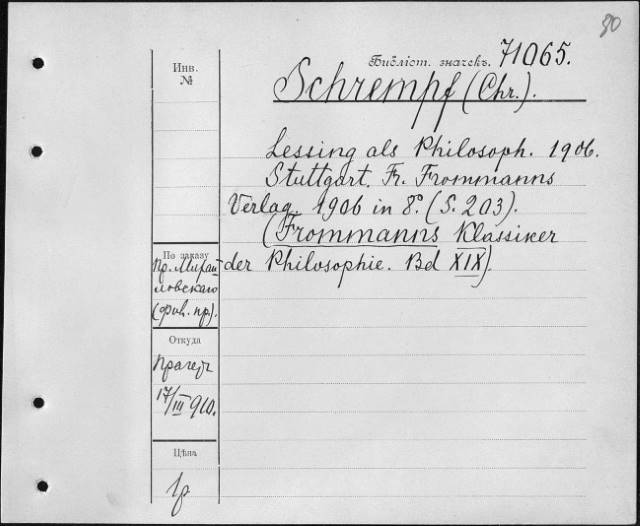 80
Библіот. значекъ. 71065.
Инв.
№
Schrempf (Chr.).
Lessing als Philosoph. 1906.
Stuttgart. Fr. Frommanns
Verlag. 1906 in 8º. (S. 203).
(Frommanns Klassiker
der Philosophie. Bd XIX).
По заказу
Пр.
ловскаго
Откуда
Прагеръ
17/III 910.
Цѣна
1р